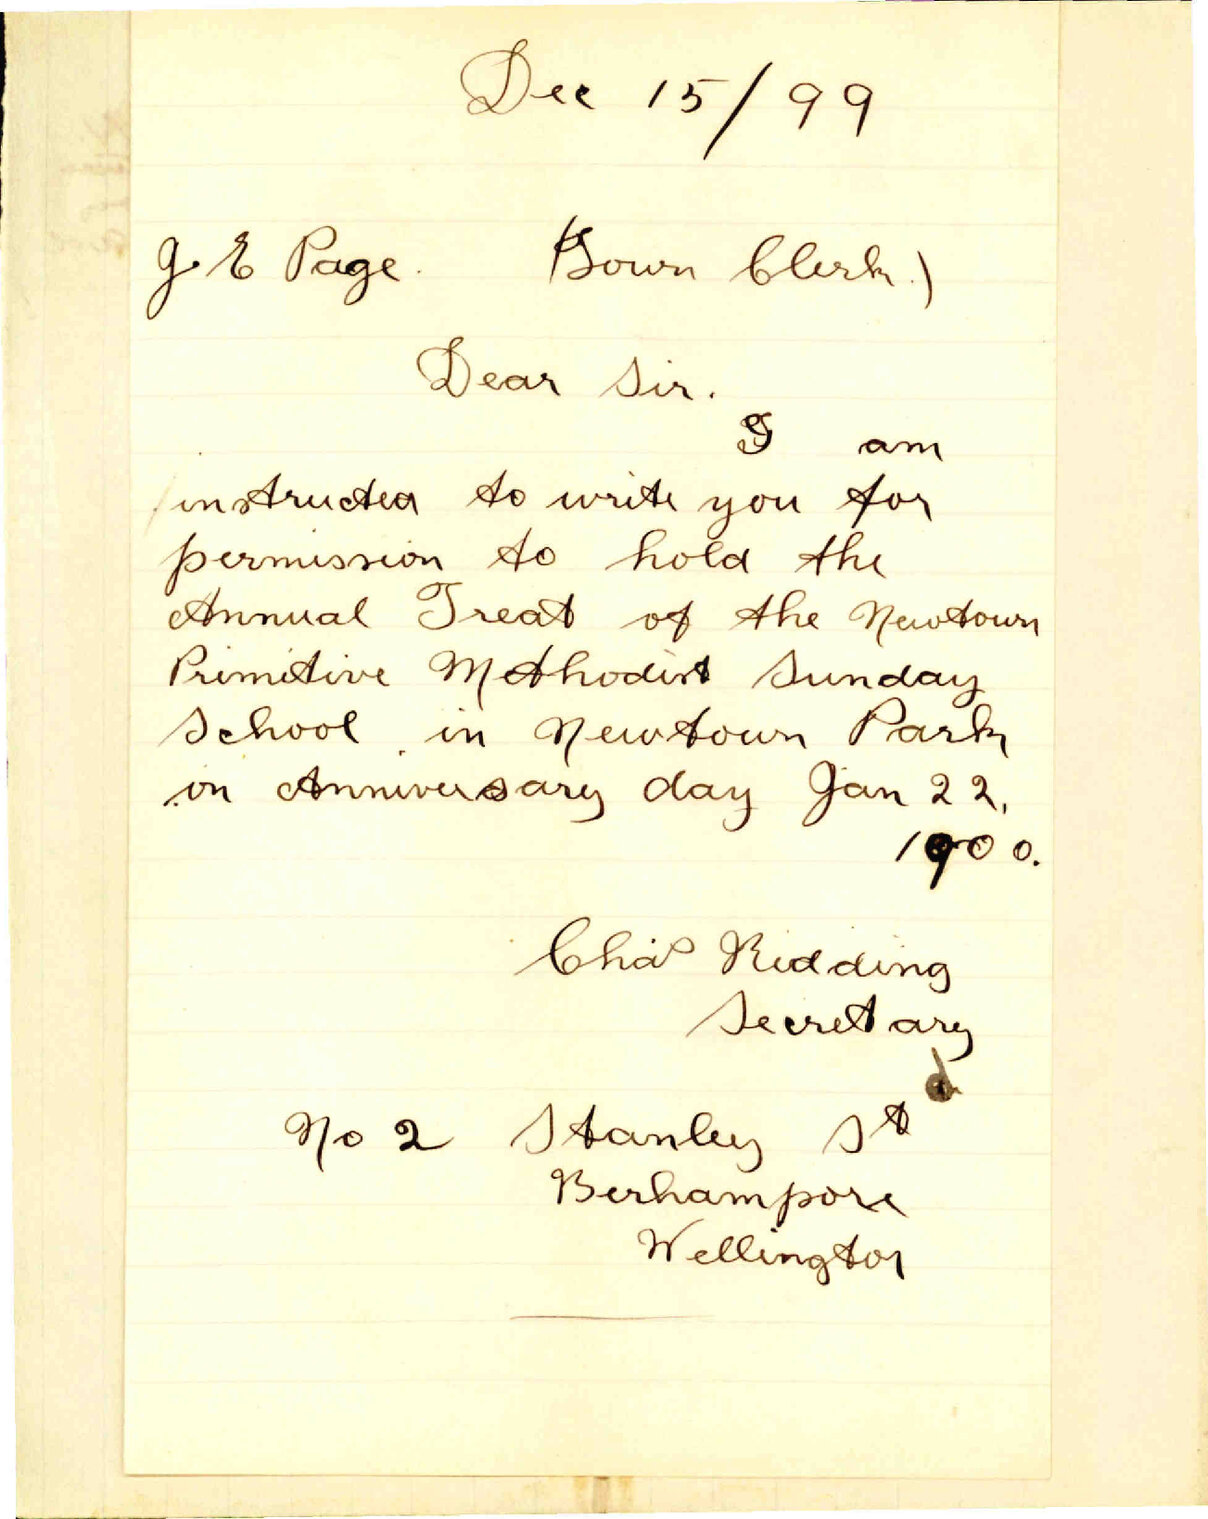 Dec 15/99
J. E Page. (Town Clerk.)
Dear Sir.
I am
instructed to write you for
permission to hold the
Annual Treat of the Newtown
Primitive Methodist Sunday
School in Newtown Park
on Anniversary day Jan 22,
1900.
Chas Ridding
Secretary
No 2 Stanley St
Berhampore
Wellington